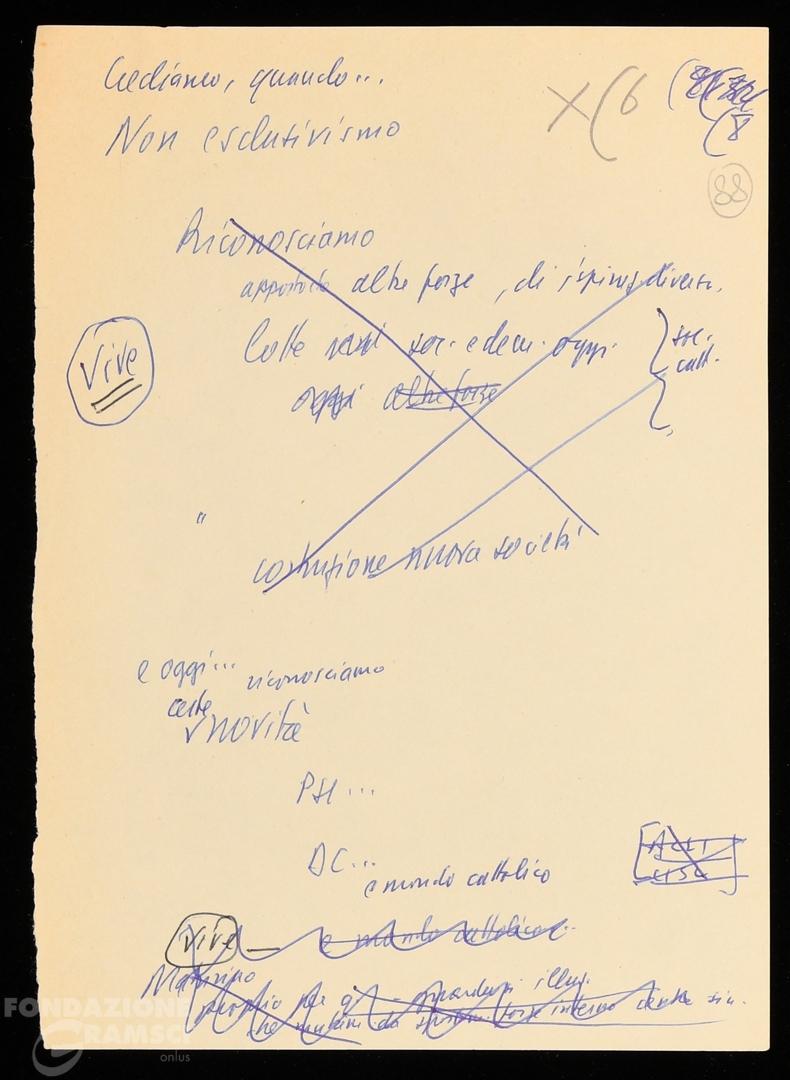 Crediamo, quando...
Non esclusivismo
X (6
(8
88
Riconosciamo
apporto di altre forze, di ispiraz. diversa,
Lotte soc. e dem. oggi.
soc.
catt.
oggi altre forze
Vive
"
costruzione nuova società
e oggi... riconosciamo
certe
novità
PSI...
DC...
e mondo cattolico
ACLI
CISL
Vive —
e mondo cattolico..
proprio per q.
che
forze interno
FONDAZIONE
GRAMSCI
onlus